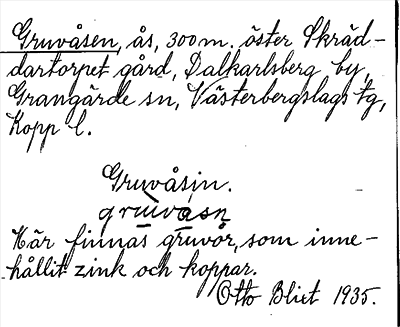 Gruvåsen, ås, 300 m. öster Skräd-
dartorpet gård, Dalkarlsberg by,
Grangärde sn, Västerbergslags tg,
Kopp l.
Gruvåsin.
gruvåsn
Här finnas gruvor, som inne-
hållit zink och koppar.
Otto Blixt 1935.